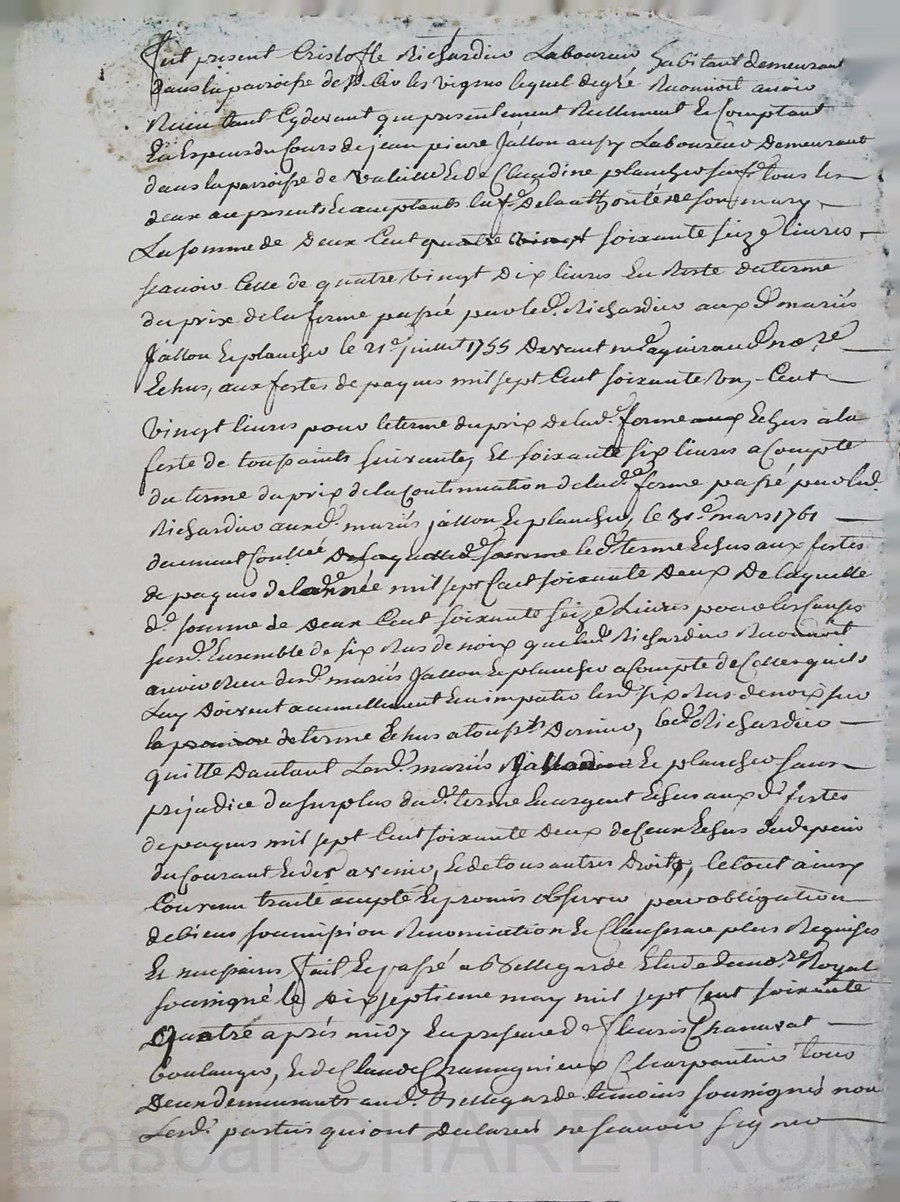 fut present Cristofle Richardier Laboureur habitant demeurant
dans la paroisse de les vignes lequel de gré Reconnoit avoir
Receu tant cydevant que presentement Reellement Et Comptant
En Especes du Cours de jean pierre Jallon aussy Laboureur Demeurant
dans la paroisse de Valeille Et de Claudine plancher sa fe. tous les
deux icy presents Et acceptants lad. De lauthorité de son mary,
La somme de Deux Cent quatre vingt soixante seize livres,
scavoir Celle de quatre vingt Dix livres En Reste du terme
du prix de la ferme passée par led. Richardier aux d. mariés
Jallon Et plancher le 21e. juillet 1755 Devant me. guiraud nore. Re
Echus, aux festes de paques mil sept Cent soixante Un, Cent
Vingt livres pour le terme du prix de lad. ferme aux Echus à la
feste de toussaints suivante, Et soixante six livres a Compte
du terme du prix de la Continuation de lad. ferme passée par led.
Richardier aux d. mariés jallon Et plancher, le 31e. mars 1761
duement Conllée De laquelle d. somme le d. terme Echus aux festes
de paques de lannée mil sept Cent soixante Deux De laquelle
d. somme de Deux Cent soixante seize Livres pour les Causes
susd. Ensemble de six Ras de noix que led. Richardier Reconnoit
avoir Receu desd. mariés Jallon Et plancher a Compte de Celles quils
Luy Doivent annuellement En imputer lesd. six Ras de noix sur
le premier de terme Echus a toussts. Dernier, led. Richardier
quitte Dautant Lesd. mariés Jallon Et plancher sans
préjudice du surplus dud. terme En argent Echus aux d. festes
de paques mil sept Cent soixante Deux de Ceux Echus Du depuis
du Courant Et des avenir, Et de tous autres Droits, le tout ainsy
Convenu traité accepté Et promis observer par obligation
de biens soumission Renonciation Et Clauses au plus Requises
Et necessaires fait Et passé a Bellegarde Etude du nore. Royal
soussigné le Dix septieme may mil sept Cent soixante
Quatre après midy En presence de fleuris Chanavat
boulanger, Et de Claude Charpentier tous
Deux demeurants aud. Bellegarde temoins soussignés non
Lesd. parties qui ont Declarées ne scavoir signer
Pascal CHAREYRON